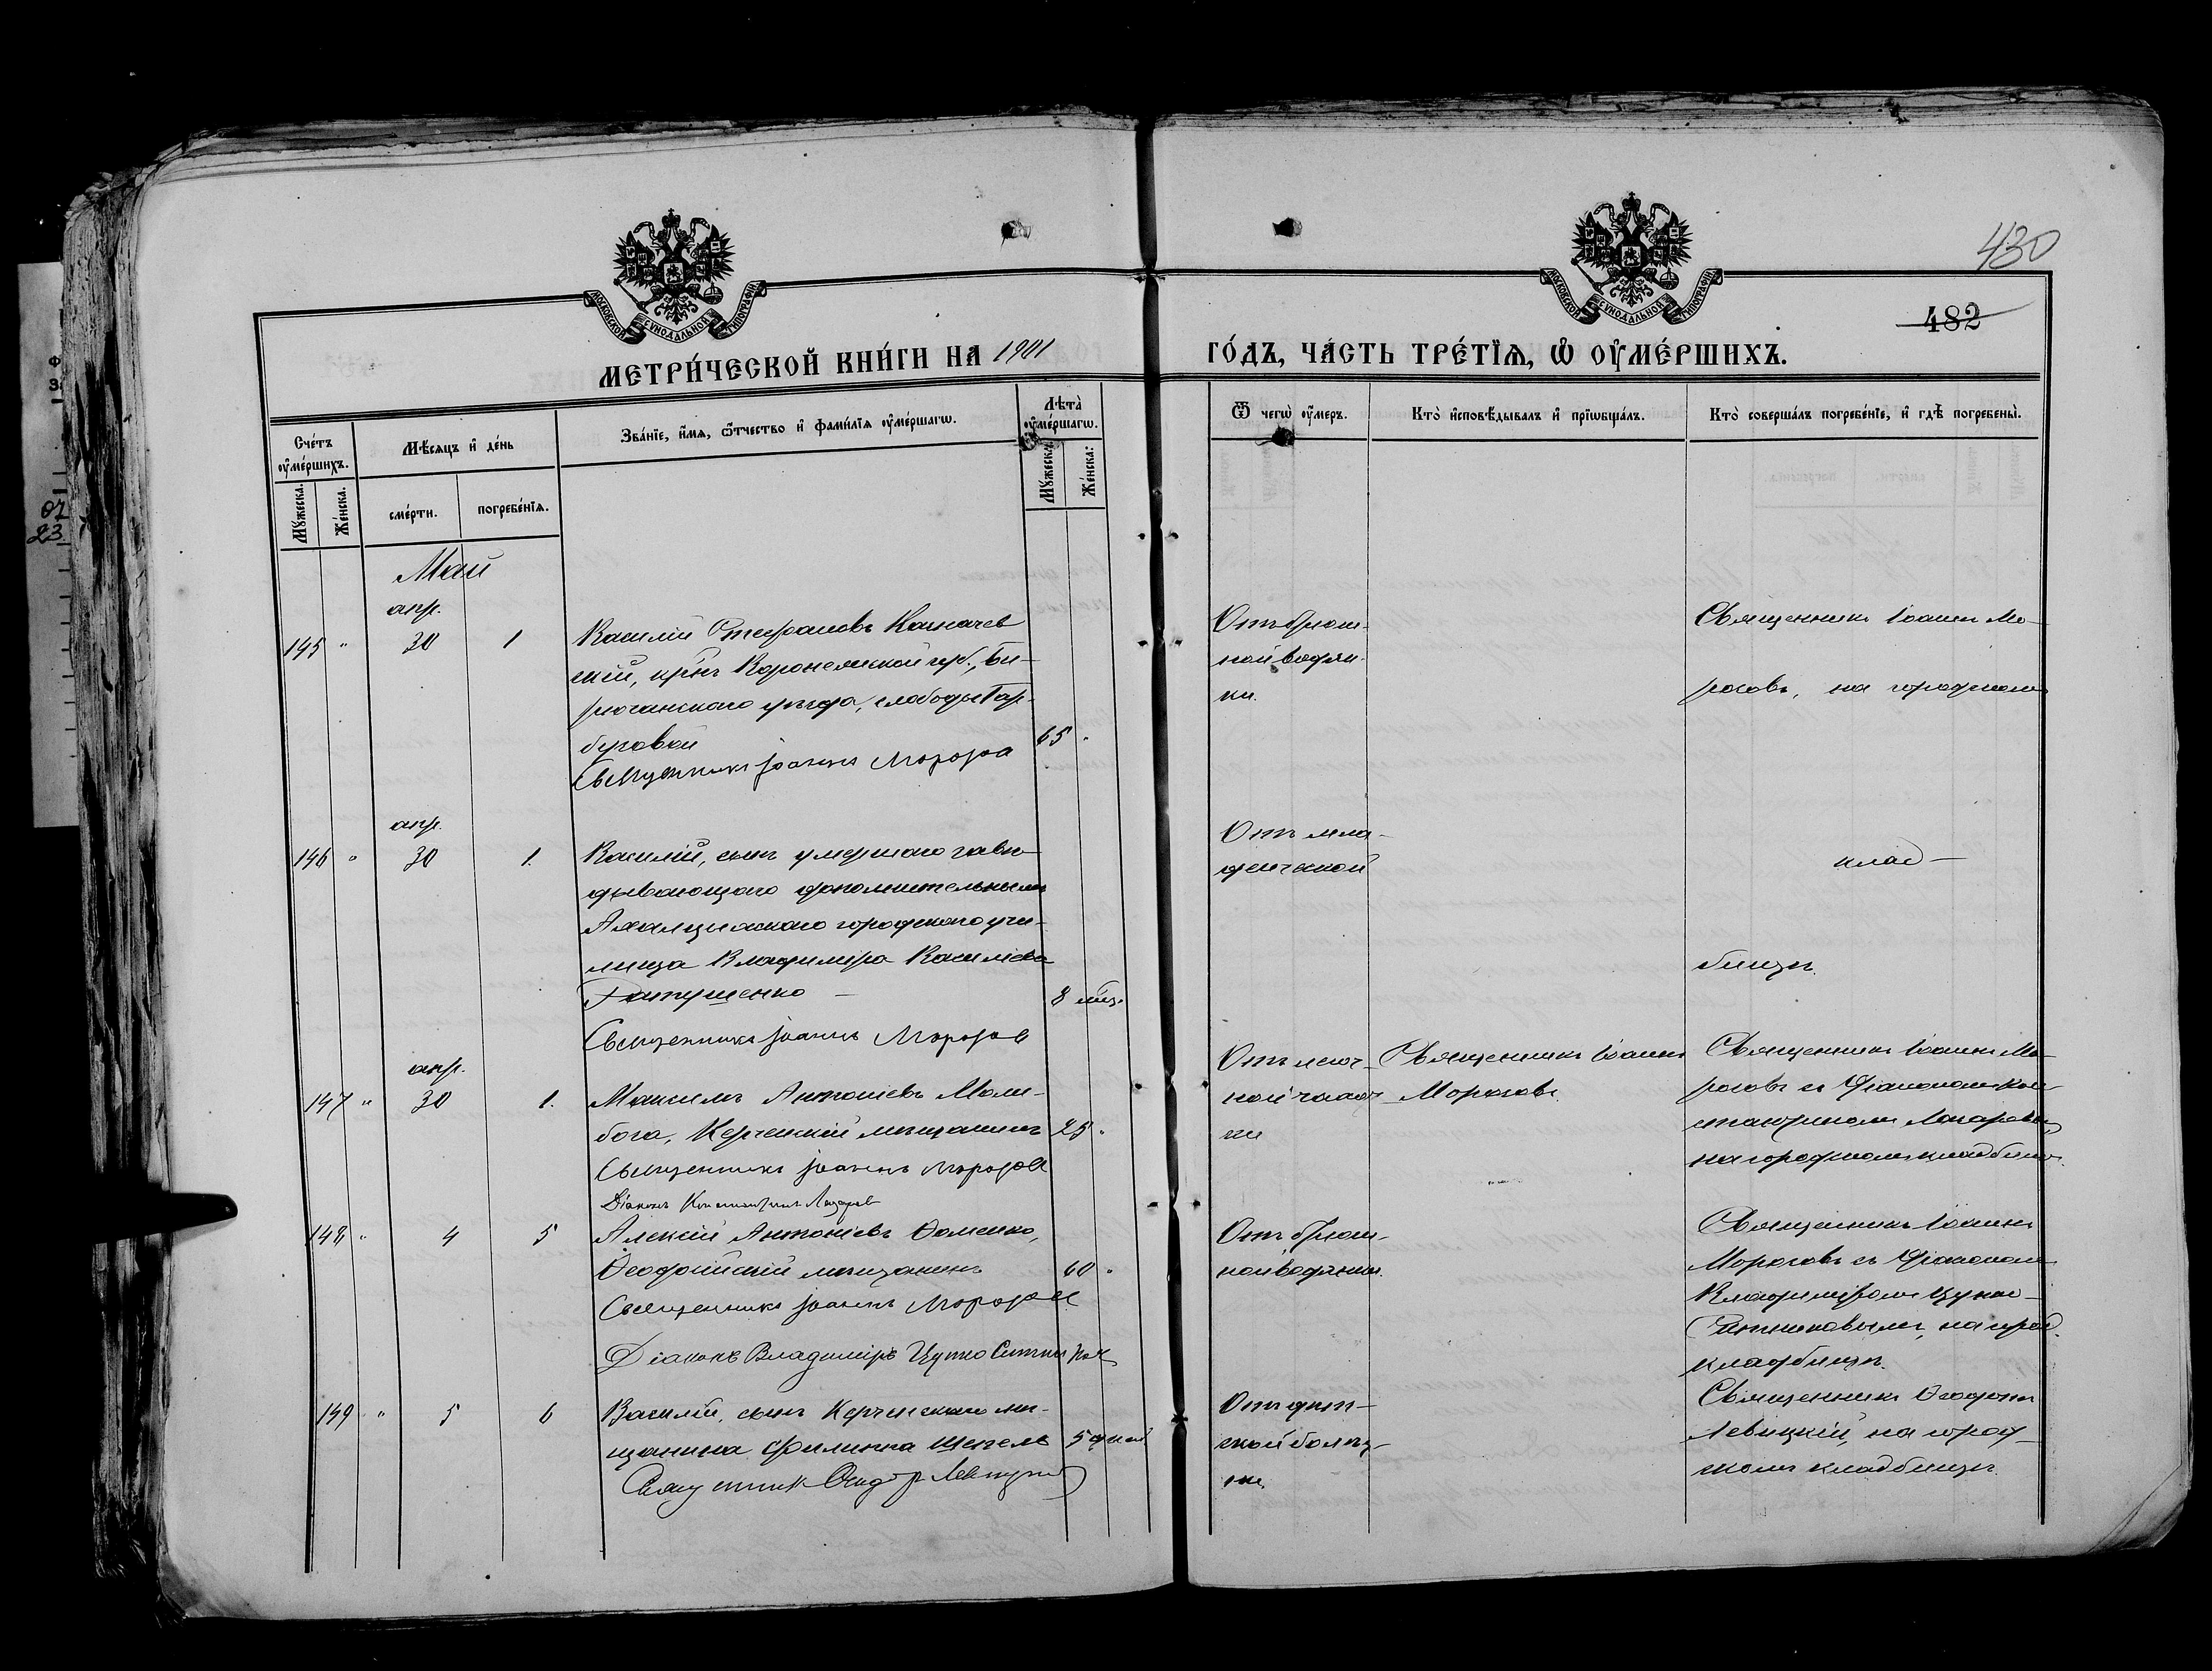 430
482
МОСКОВСКОЙ СУНОДАЛЬНОЙ ТИПОГРАФІИ
МОСКОВСКОЙ СУНОДАЛЬНОЙ ТИПОГРАФІИ
МЕТРИ́ЧЕСКОЙ КНИ́ГИ НА 1901 ГО́ДЪ, ЧА́СТЬ ТРЕ́ТЇѦ, Ѽ ОУ҆МЕ́РШИХЪ.
Сче́тъ оу҆ме́ршихъ.
Мꙋ́жеска.
Же́нска.
Мѣ́сяцъ и҆ де́нь
сме́рти.
погребе́нїѧ.
Зва́нїе, и҆́мѧ, ѻ҆́тчество и҆ фами́лїѧ оу҆ме́ршагѡ.
Лѣта̀ оу҆ме́ршагѡ.
Мꙋ́жеска.
Же́нска.
Ѿ чегѡ̀ оу҆́меръ.
Кто̀ и҆сповѣ́дывалъ и҆ прїѡбща́лъ.
Кто̀ соверша́лъ погребе́нїе, и҆ гдѣ̀ погребены̀.
Май
апр.
145 " 30 1
Василій Стефановъ Казначев
скій, кр-нъ Воронежской губ., Би-
рюченскаго уѣзда, слободы Гар-
бузовой
65 "
Священникъ Іоаннъ Морозов
Отъ брюш-
ной водян-
ки.
Священникъ Іоаннъ Мо-
розовъ, на городском
апр.
146 " 30 1.
Василій, сынъ умершаго завѣ-
дывающаго дополнительнымъ
Ахалцихскаго городского учи-
лища Владиміра Васильева
8 мѣс.
Священникъ Іоаннъ Морозов
Отъ мла-
денческой
клад-
бищѣ.
апр.
147 " 30 1.
Максимъ Антоніевъ Моли-
бога, Керченскій мѣщанинъ 25 "
Священникъ Іоаннъ Морозов
Діаконъ Константинъ Лазарев
Отъ легоч-
ной чахот-
ки
Священникъ Іоаннъ
Морозовъ.
Священникъ Іоаннъ Мо-
розовъ съ діакономъ Кон-
стантиномъ Лазаревымъ,
на городскомъ кладбищѣ.
148 " 4 5
Алексій Антоніевъ Фоменко,
Ѳеодосійскій мѣщанинъ 60 "
Священникъ Іоаннъ Морозов
Діаконъ Владиміръ Цупко Ситников
Отъ брюш-
ной водянки.
Священникъ Іоаннъ
Морозовъ съ діакономъ
Владиміромъ Цупко-
Ситниковымъ, на город.
кладбищѣ.
149 " 5 6
Василій, сынъ Керченскаго мѣ-
щанина Филиппа Щепель 5 дней
Священник Ѳеодор Левицкій
Отъ дѣт-
ской болѣз-
ни.
Священникъ Ѳеодоръ
Левицкій, на город-
скомъ кладбищѣ.